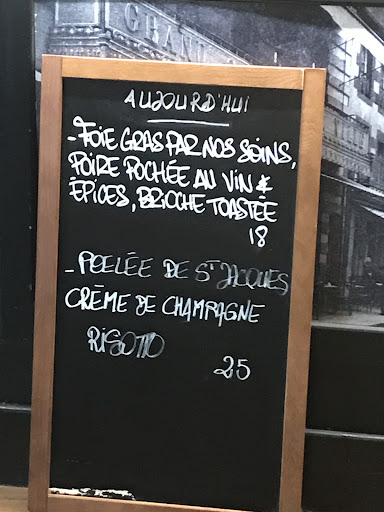 GRAND
AUJOURD'HUI
-FOIE GRAS PAR NOS SOINS,
POIRE POCHÉE AU VIN &
ÉPICES, BRIOCHE TOASTÉE
18
- POELÉE DE ST JACQUES
CRÈME DE CHAMPAGNE
RISOTTO
25